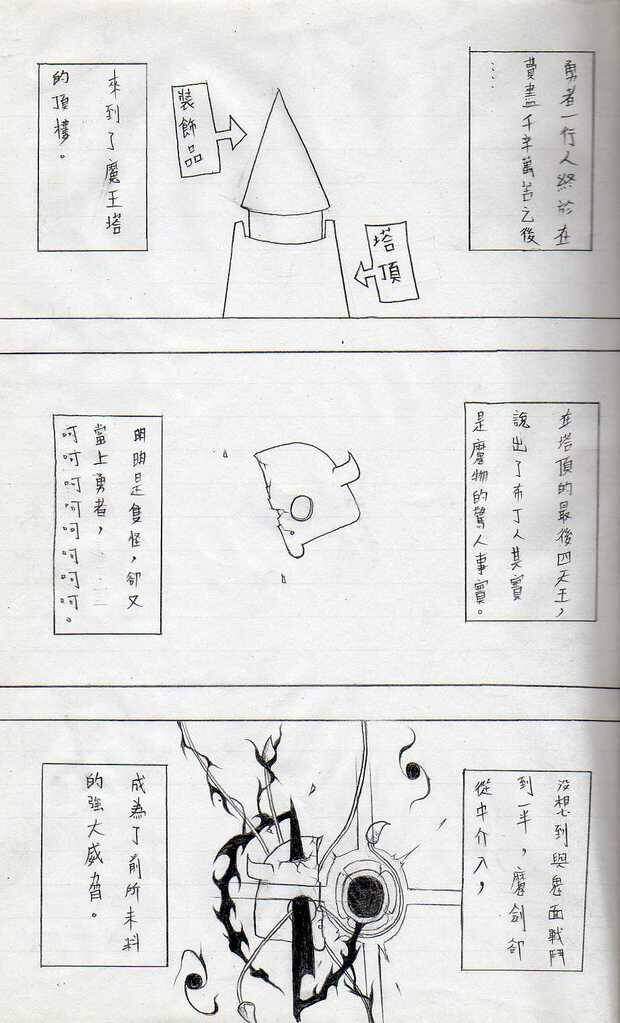 勇者一行人終於在
費盡千辛萬苦之後
……
裝飾品
塔頂
來到了魔王塔
的頂樓。
在塔頂的最後四天王，
說出了布丁人其實
是魔物的驚人事實。
明明是隻怪，卻又
當上勇者，……
呵呵呵呵呵呵呵呵。
沒想到與鬼面戰鬥
到一半，魔劍卻
從中介入，
成為了前所未料
的強大威脅。